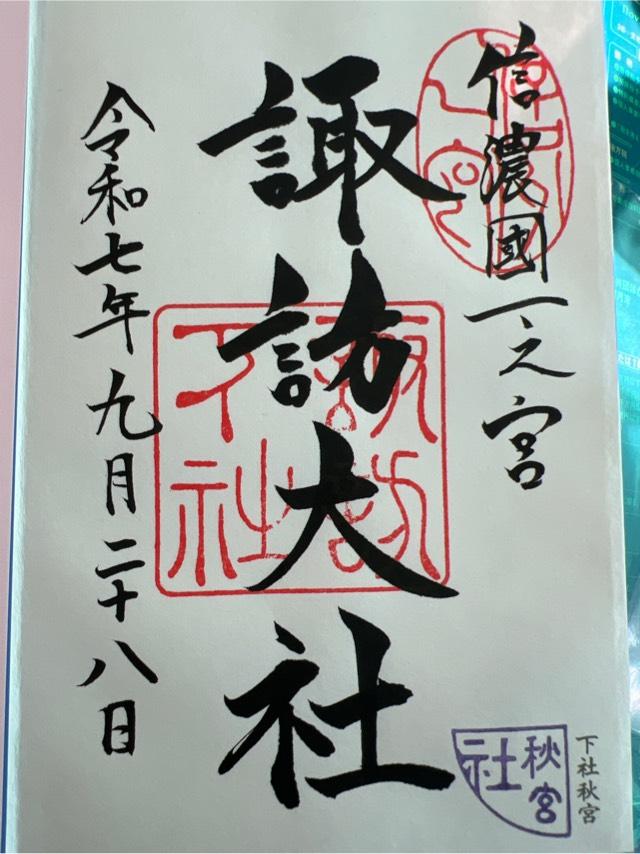 信濃國一之宮
諏訪大社
諏訪
下社
令和七年九月二十八日
秋宮
社
下社秋宮